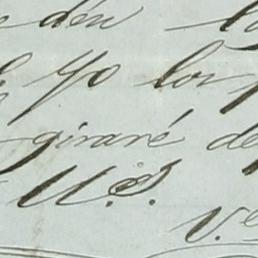 dén
Yo los
giraré de
U.S.
V.e